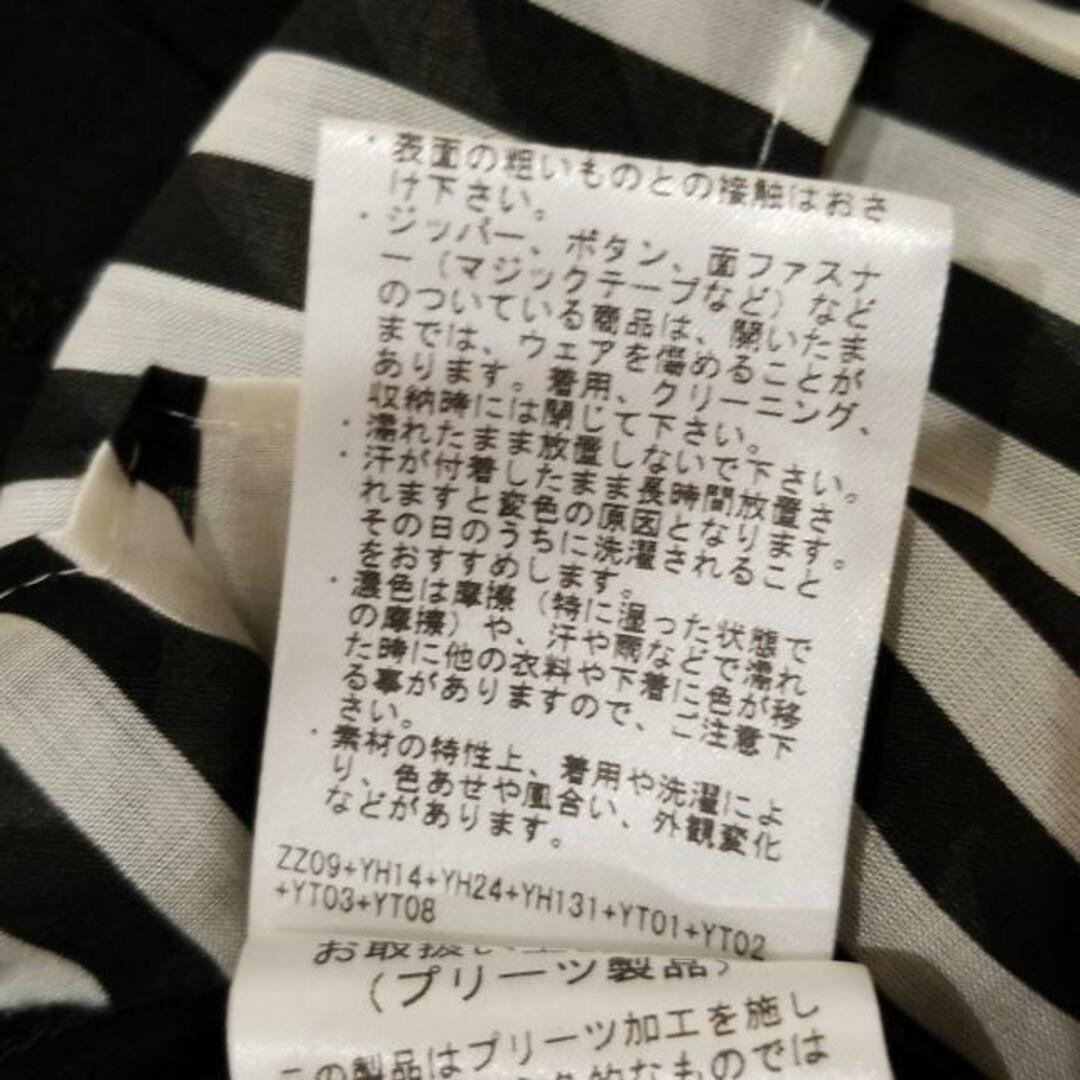 ・表面の粗いものとの接触はおさ
け下さい。
・ジッパー、ボタン、面ファスナ
ー（マジックテープなど）など
のついている商品は、開いたま
までは、ウェアを傷めることが
あります。着用、クリーニング、
収納時には閉じて下さい。
・濡れたまま放置しないで下さい。
・汗が付着したまま長時間放置さ
れますと変色の原因となります。
その日のうちに洗濯されること
をおすすめします。
・濃色は摩擦（特に湿った状態で
の摩擦）や、汗や雨などで濡れ
た時に他の衣料や下着に色が移
る事がありますので、ご注意下
さい。
・素材の特性上、着用や洗濯によ
り、色あせや風合い、外観変化
などがあります。
ZZ09+YH14+YH24+YH131+YT01+YT02
+YT03+YT08
お取扱い上
（プリーツ製品）
この製品はプリーツ加工を施し
的なものでは